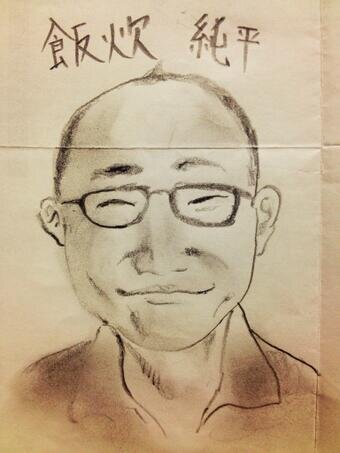 飯炊 純平